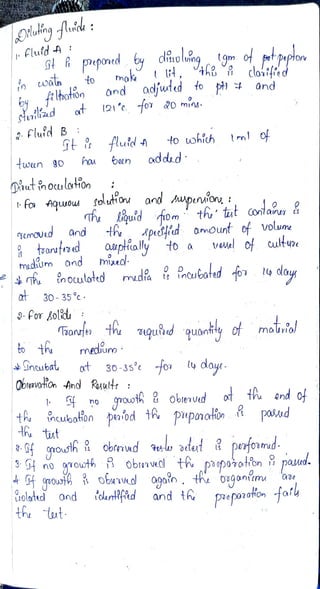 Diluting fluids :
1. Fluid A :
It is prepared by dissolving 1gm of pet.peptone
in water to make 1 lit, this is clarified
by filtration and adjusted to pH 7 and
sterilized at 121°c. for 20 mins.
2. Fluid B :
It is fluid A to which 1ml of
tween 80 has been added.
Direct inoculation :
1. For Aqueous solutions and suspensions :
The liquid from the test container is
removed and the specified amount of volume
is transfered aseptically to a vessel of culture
medium and mixed.
* The inoculated media is incubated for 14 days
at 30-35°c.
2. For solids :
Transfer the required quantity of material
to the medium.
* Incubate at 30-35°c for 14 days.
Observation And Results :
1. If no growth is observed at the end of
the incubation period the preparation is passed
the test
2. If growth is observed retest is performed.
3. If no growth is observed the preparation is passed.
4. If growth is observed again, the organisms are
isolated and identified and the preparation fails
the test.